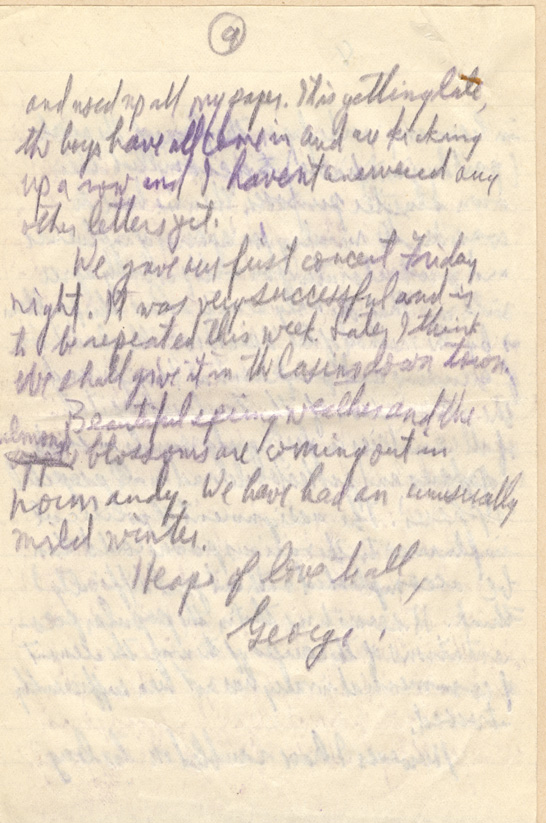 9
and used up all my paper. It is getting late,
the boys have all come in and are kicking
up a row and I haven't answered any
other letters yet.
We gave our first concert Friday
night. It was very successful and is
to be repeated this week. Later I think
we shall give it in the Casino down town.
Beautiful spring weather and the
almond
apple blossoms are coming out in
Normandy. We have had an unusually
mild winter.
Heaps of love to all,
George.